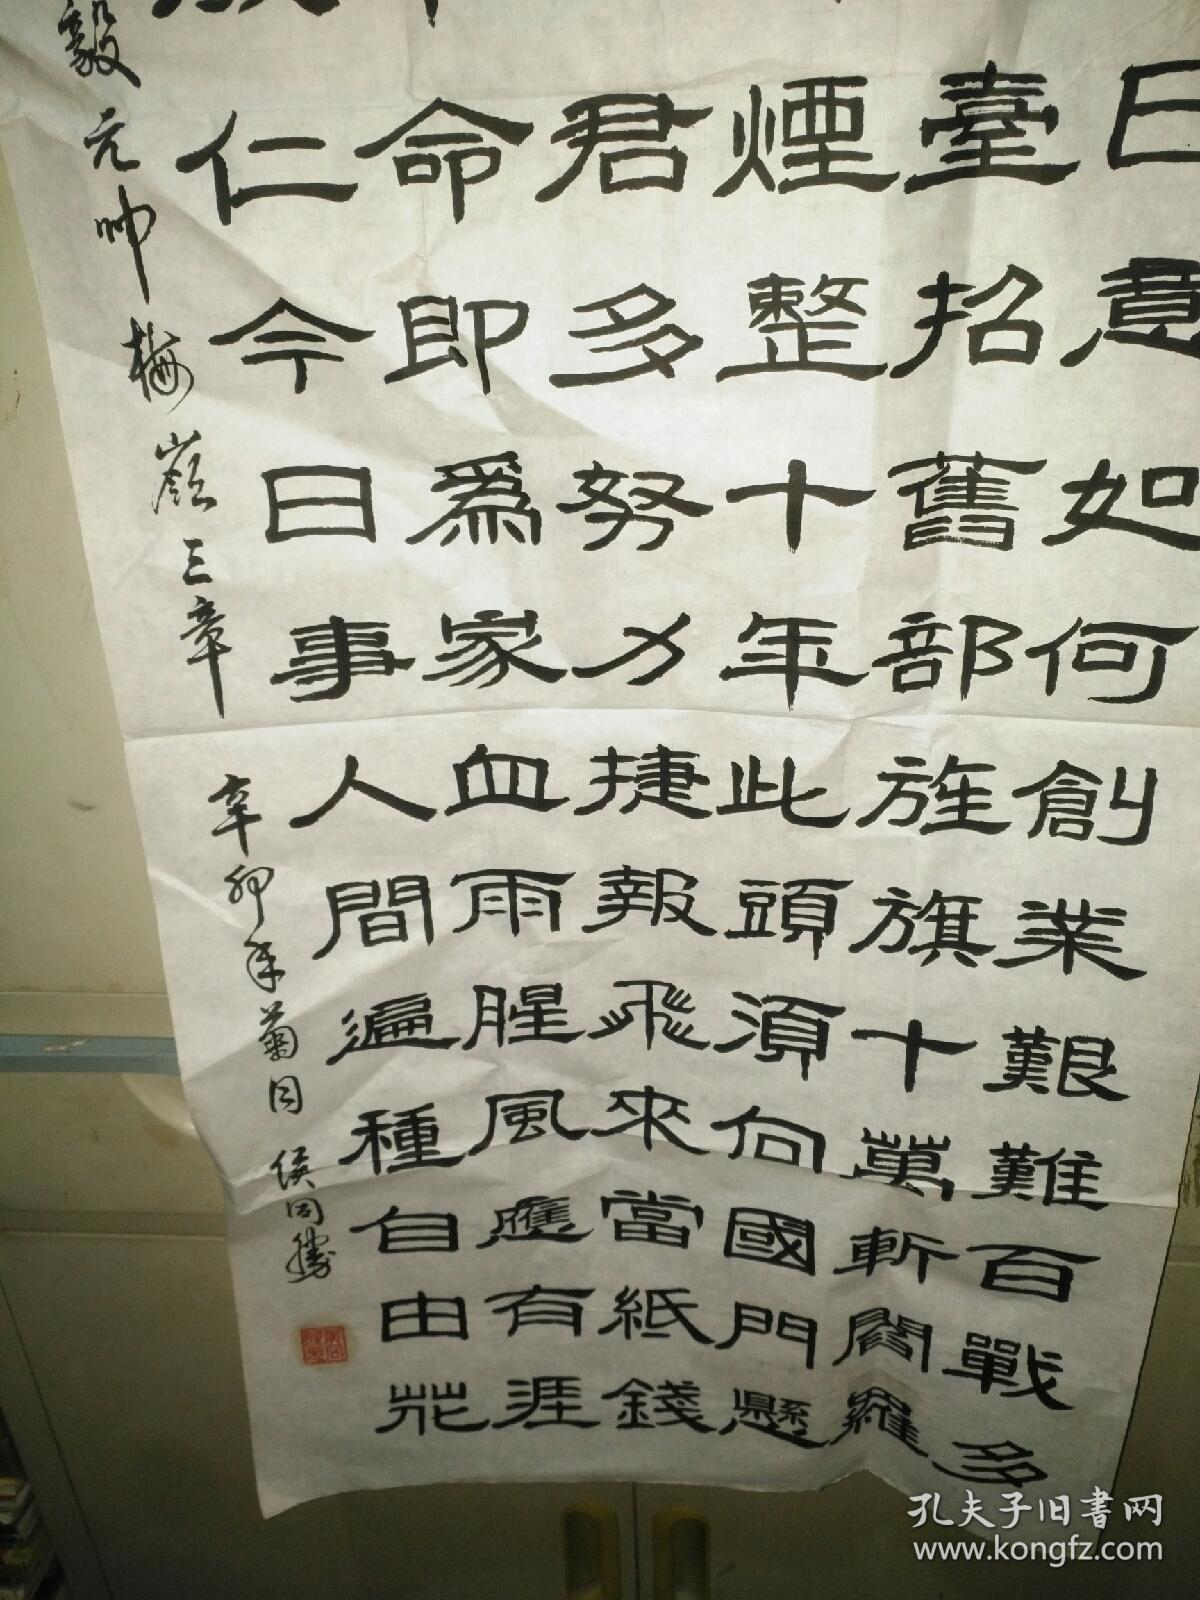 日意如何創業艱難百戰多
臺招舊部旌旗十萬斬閻羅
煙整十年此頭須向國門懸
君多努力捷報飛來當紙錢
命即為家血雨腥風應有涯
仁今日事人間遍種自由花
毅元帅梅嶺三章
辛卯年菊月侯同勝
孔夫子旧書网
www.kongfz.com